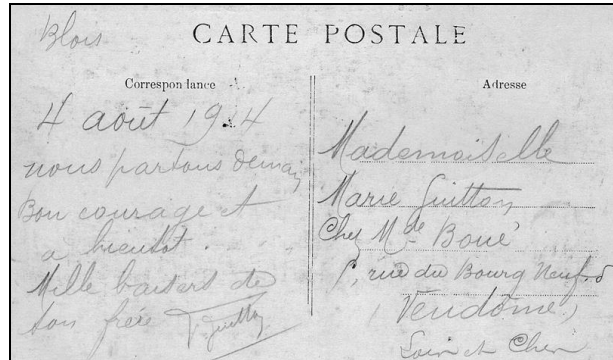 Blois
CARTE POSTALE
Correspondance
4 août 1914
nous partons demain
Bon courage et
a bientot.
Mille baisers de
ton frère Guitton
Adresse
Mademoiselle
Marie Guitton
Chez Mde Boué
rue du Bourg Neuf
(Vendôme)
Loir et Cher